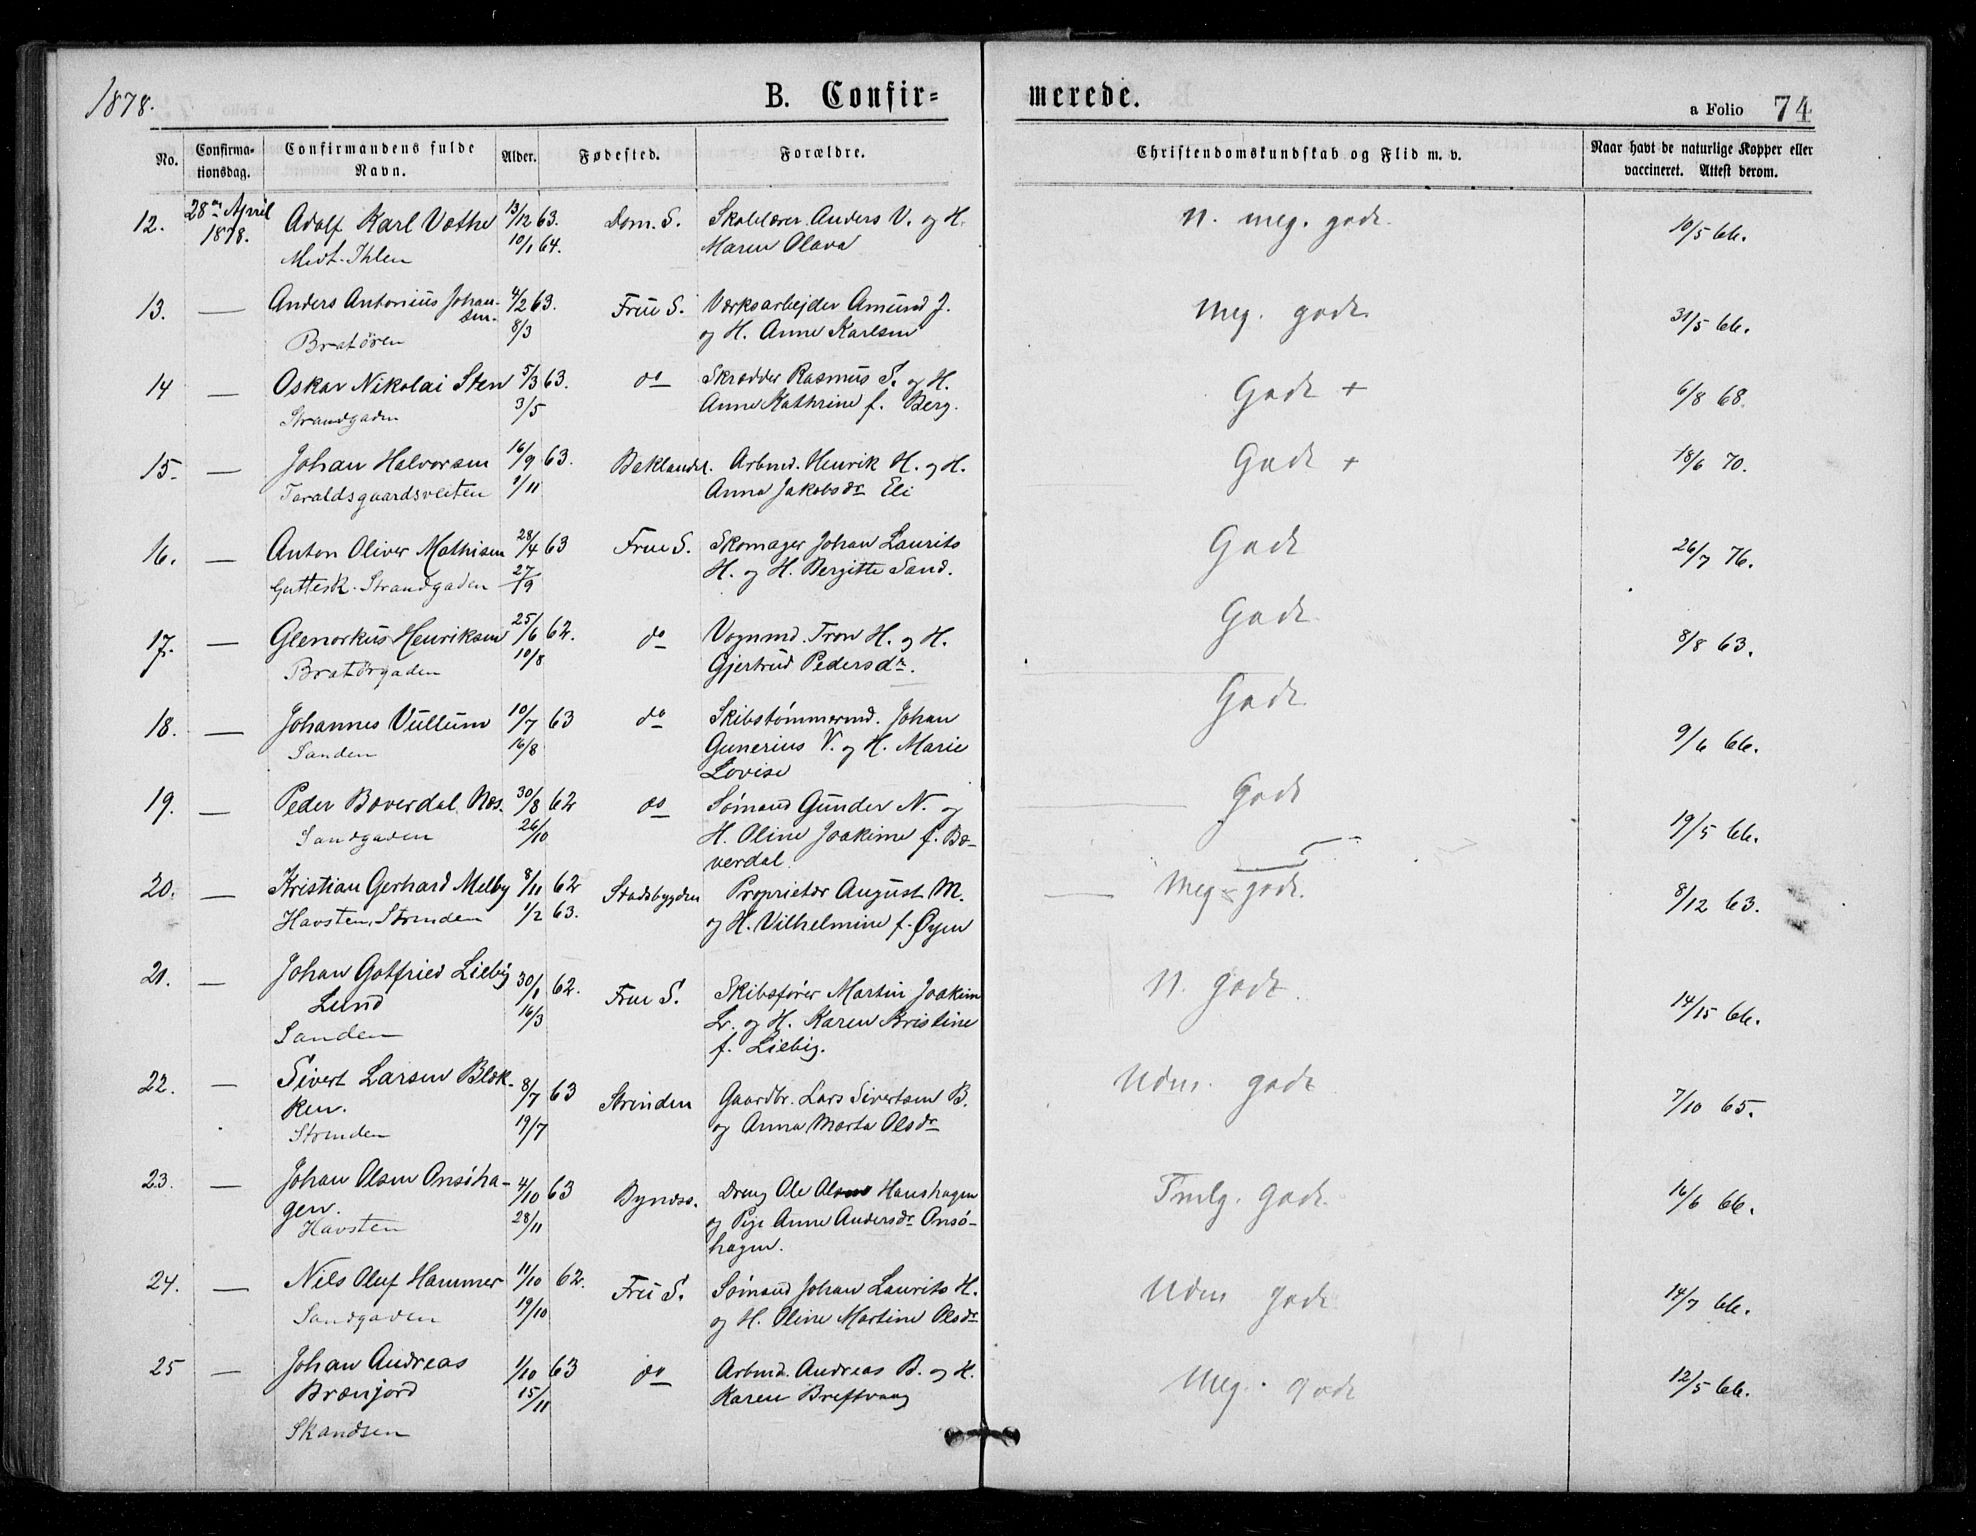 1878.
B. Confir= merede.
a Folio 74
No. Confirma-tionsdag. Confirmandens fulde Navn. Alder. Fødested. Forældre. Christendomskundskab og Flid m. v. Naar havt de naturlige Kopper eller vaccineret. Attest derom.
12. 28de April 1878. Adolf Karl Væthe 13/12 63. Dom. S. Skolelærer Anders V. og H. N. meg. godt. 10/5 66.
Midt-Ihlen 10/1 64. Maren Olava
13. — Anders Antonius Johan- 4/2 63. Frue S. Værksarbejder Amund J. Meg. godt. 31/5 66.
sen. 8/3 og H. Anne Karlsen
Bratøren
14 — Oskar Nikolai Sten 5/3 63. do Skrædder Rasmus S. og H. Godt + 6/8 68.
Strandgaden 3/5 Anne Kathrine f. Berg.
15. — Johan Halvorsen 16/9 63. Baklandet. Arbmd. Henrik H. og H. Godt + 18/6 70.
Taraldsgaardsveiten 1/11 Anna Jakobsdr Eli
16. — Anton Oliver Mathisen 28/4 63 Frue S. Skomager Johan Laurits Godt 26/7 76.
Guttesk. Strandgaden 27/9 H. og H. Bergitte Sand.
17. — Glenorkus Henriksen 25/6 62. do Vognmd. Tron H. og H. Godt. 8/8 63.
Bratørgaden 10/8 Gjertrud Pedersdr.
18. — Johannes Vullum 10/7 63 do Skibstømmermd. Johan Godt 9/6 66.
Sanden 16/8 Gunerius V. og H. Marie
Lovise
19. — Peder Bæverdal Næs. 30/8 62 do Sømand Gunder N. og Godt 19/5 66.
Sandgaden 26/10 H. Oline Joakime f. Bæ-
verdal.
20. — Kristian Gerhard Melby 8/11 62 Stadsbygden Proprietær August M. Meg. godt. 8/12 63.
Havsten, Strinden 1/2 63. og H. Vilhelmine f. Øyen
21. — Johan Gotfried Liebig 30/1 62. Frue S. Skibsfører Martin Joakim N. godt. 14/15 66.
Lund 16/3 L. og H. Karen Kristine
Sanden f. Liebig.
22. — Sivert Larsen Blæk- 8/7 63 Strinden Gaardbr. Lars Sivertsen B. Udm. godt 7/10 65.
ken. 19/7 og Anna Marta Olsdr
Strinden
23. — Johan Olsen Onsøha- 4/10 63 Byness. Dreng Ole Olsen Hanshagen Tmlg. godt. 16/6 66.
gen. 28/11 og Pige Anne Andersdr Onsø-
Havsten hagen.
24. — Nils Oluf Hammer 11/10 62. Fru S. Sømand Johan Laurits H. Udm godt 14/7 66.
Sandgaden 19/10 og H. Oline Martine Olsdr
25 — Johan Andreas 1/10 63 do Arbmd. Andreas B. og H. Meg. godt 12/5 66.
Brænjord 15/11 Karen Breftvaag
Skandsen